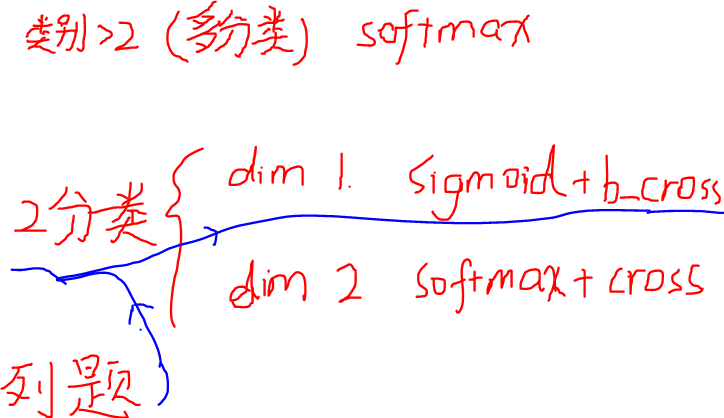 类别>2 (多分类) softmax
dim 1. sigmoid+b_cross
2分类
dim 2 softmax+cross
列题